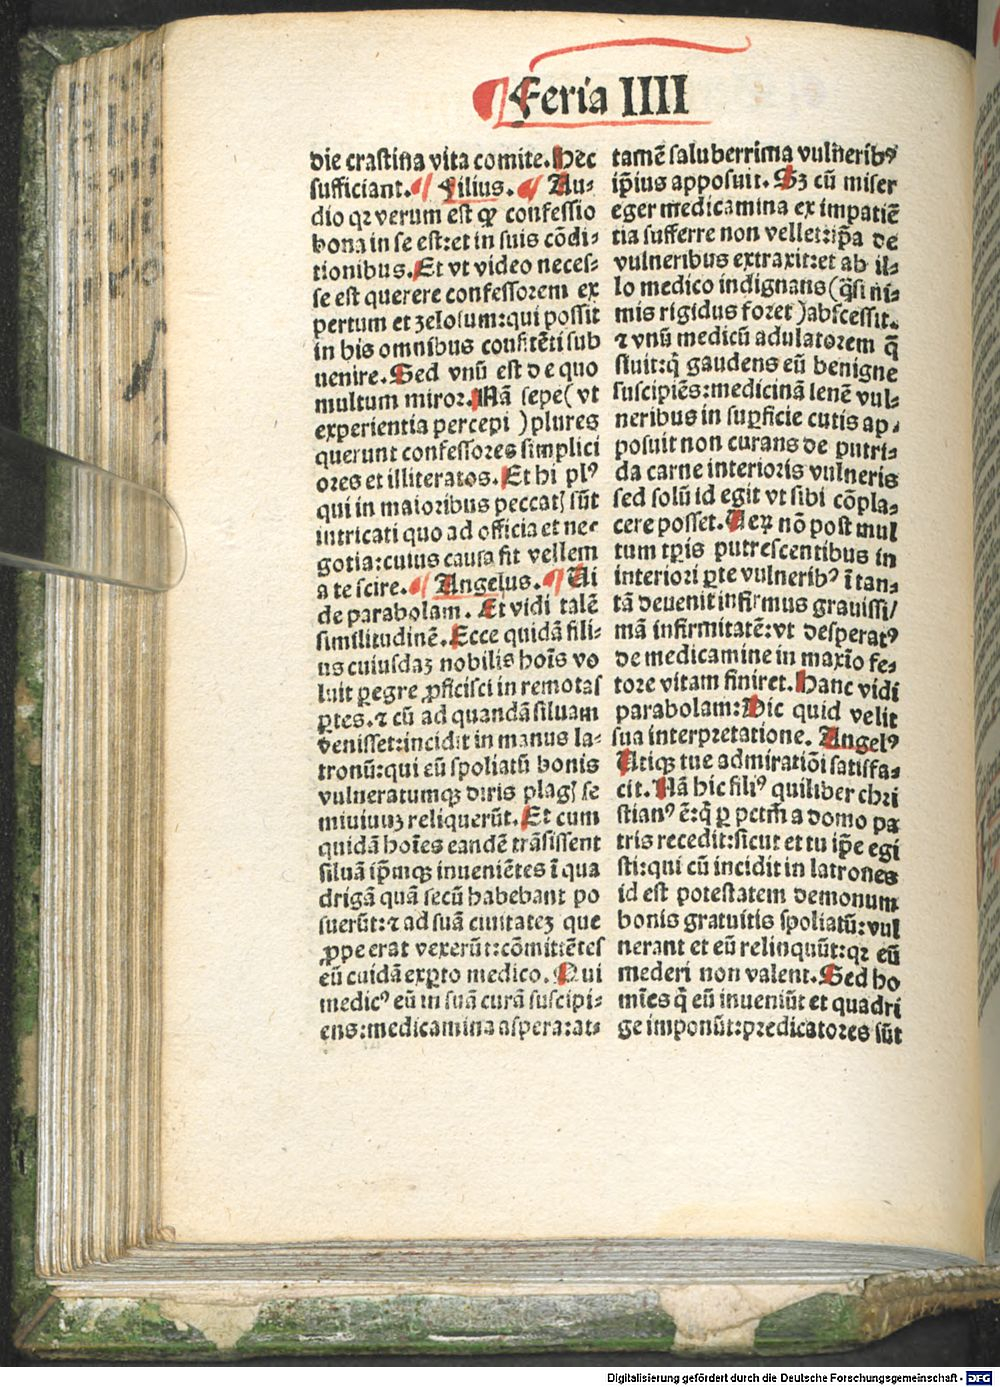 Feria IIII
die crastina vita comite. Hec
sufficiant. ¶ Filius. ¶ Au⸗
dio qꝛ verum est ꝙ confessio
bona in se est: et in suis cōdi⸗
tionibus. Et vt video neces⸗
se est querere confessorem ex
pertum et zelosum: qui possit
in his omnibus confitēti sub
uenire. Sed vnū est de quo
multum miror. Nā sepe ( vt
experientia percepi ) plures
querunt confessores simplici
ores et illiteratos. Et hi plꝰ
qui in maioribus peccatꝭ sūt
intricati quo ad officia et ne⸗
gotia: cuius causa fit vellem
a te scire. ¶ Angelus. ¶ Ui
de parabolam. Et vidi talē
similitudinē. Ecce quidā fili⸗
us cuiusdaꝫ nobilis hoīs vo
luit ꝑegre ꝓficisci in remotas
ꝑtes. ⁊ cū ad quandā siluam
venisset: incidit in manus la⸗
tronū: qui eū spoliatū bonis
vulneratumqꝫ diris plagꝭ se
miuiuuꝫ reliquerūt. Et cum
quidā hoīes eandē trāsissent
siluā ip̄mqꝫ inueniētes ī qua
drigā quā secū habebant po
suerūt: ⁊ ad suā ciuitateꝫ que
ꝓpe erat vexerūt: cōmittētes
eū cuidā exꝑto medico. Qui
medicꝰ eū in suā curā suscipi⸗
ens: medicamina aspera: at⸗
tamē saluberrima vulneribꝰ
ip̄ius apposuit. Sꝫ cū miser
eger medicamina ex impatiē
tia sufferre non vellet: ip̄a de
vulneribus extraxit: et ab il⸗
lo medico indignans ( q̄si ni⸗
mis rigidus foret ) abscessit.
⁊ vnū medicū adulatorem q̄
siuit: q̄ gaudens eū benigne
suscipiēs: medicinā lenē vul⸗
neribus in suꝑficie cutis ap⸗
posuit non curans de putri⸗
da carne interioris vulneris
sed solū id egit vt sibi cōpla⸗
cere posset. Uerꝫ nō post mul
tum tꝑis putrescentibus in
interiori ꝑte vulneribꝰ ī tan⸗
tā deuenit infirmus grauissi/
mā infirmitatē: vt desperatꝰ
de medicamine in maxīo fe⸗
tore vitam finiret. Hanc vidi
parabolam: Hic quid velit
sua interpretatione. Angelꝰ
Utiqꝫ tue admiratiōi satisfa⸗
cit. Nā hic filiꝰ quiliber chri
stianꝰ ē: q̄ ꝑ pctm̄ a domo pa
tris recedit: sicut et tu ip̄e egi
sti: qui cū incidit in latrones
id est potestatem demonum
bonis gratuitis spoliatū: vul
nerant et eū relinquūt: qꝛ eū
mederi non valent. Sed ho
mīes q̄ eū inueniūt et quadri
ge imponūt: predicatores sūt
Digitalisierung gefördert durch die Deutsche Forschungsgemeinschaft - DFG